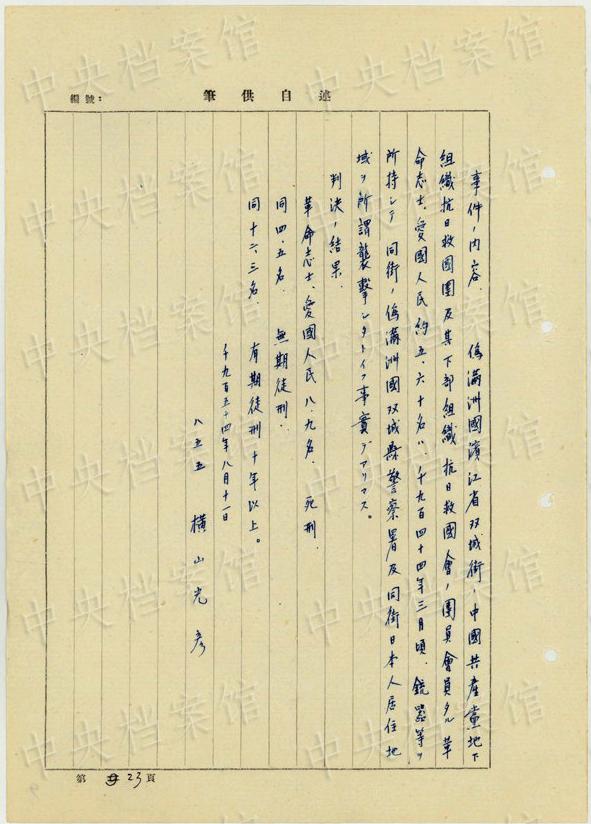 述自供筆
編號：
事件ノ内容． 偽滿洲國濱江省双城街ノ中國共産黨地下
組織抗日救國團及其下部組織抗日救國會ノ團員會員タル革
命志士、愛國人民約五、六十名ハ、千九百四十四年三月頃、銃器等ヲ
所持シテ同街ノ偽滿洲國双城縣警察署及同街日本人居住地
域ヲ所謂襲撃シタトイフ事實デアリマス。
判決ノ結果．
革命志士、愛國人民八、九名． 死刑．
同四、五名． 無期徒刑．
同十二、三名． 有期徒刑十年以上。
千九百五十四年八月十一日
八五五 横山光彦
第 23 頁
中央档案馆